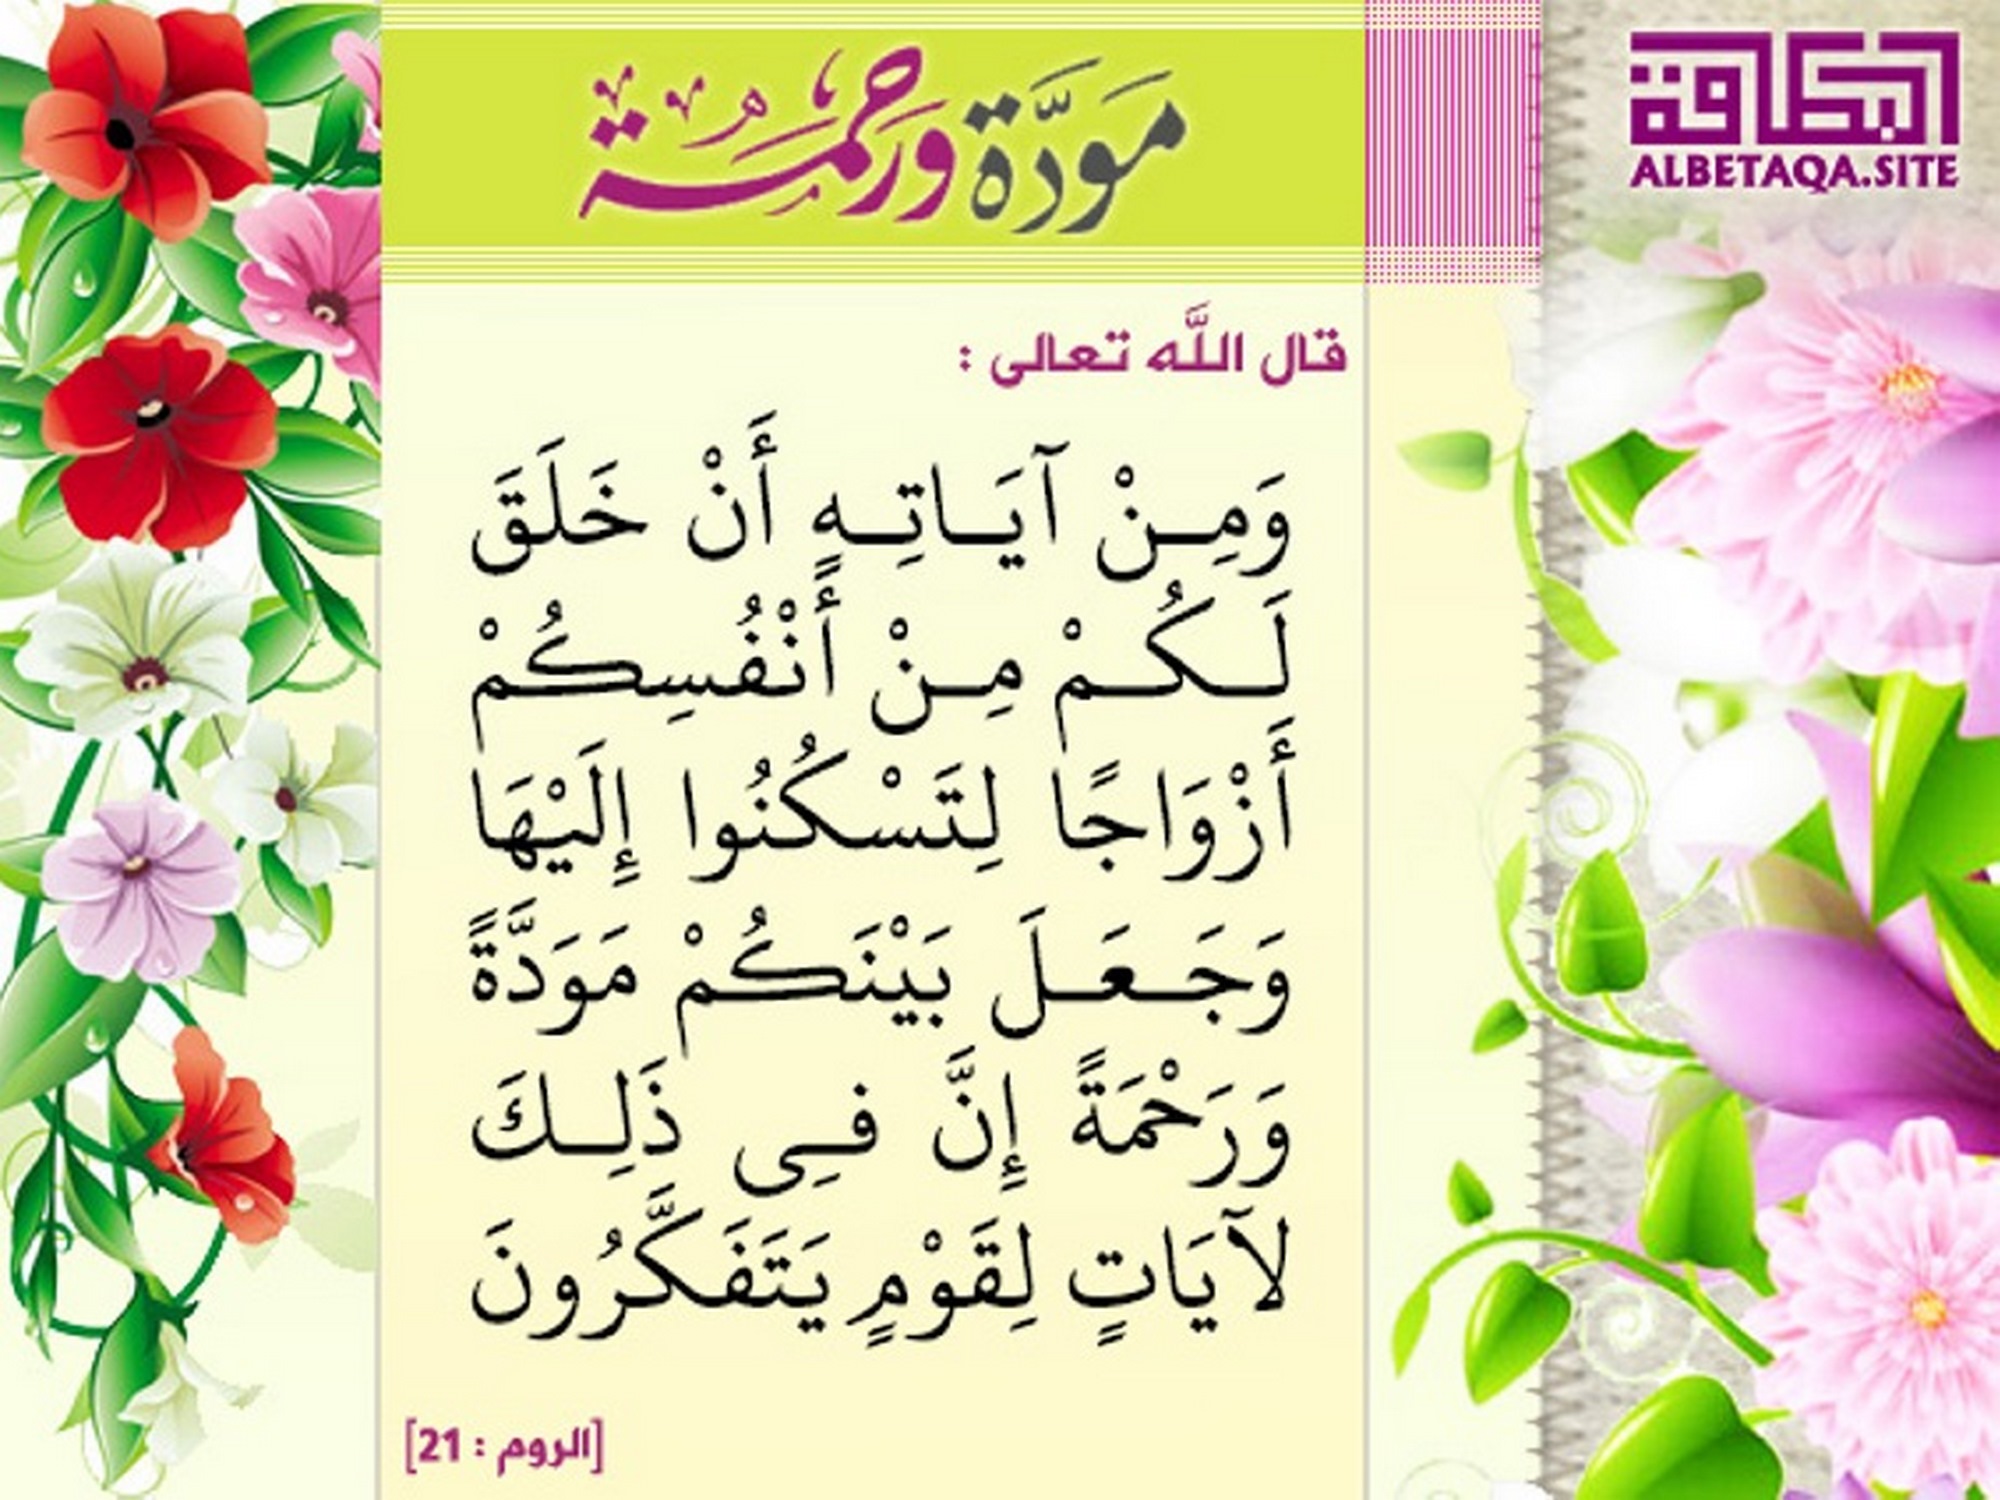 مَوَدَّة ورحمة
البطاقة
ALBETAQA.SITE
قال اللَّه تعالى :
وَمِنْ آيَاتِهِ أَنْ خَلَقَ
لَكُمْ مِنْ أَنْفُسِكُمْ
أَزْوَاجًا لِتَسْكُنُوا إِلَيْهَا
وَجَعَلَ بَيْنَكُمْ مَوَدَّةً
وَرَحْمَةً إِنَّ فِي ذَلِكَ
لآيَاتٍ لِقَوْمٍ يَتَفَكَّرُونَ
[الروم : 21]